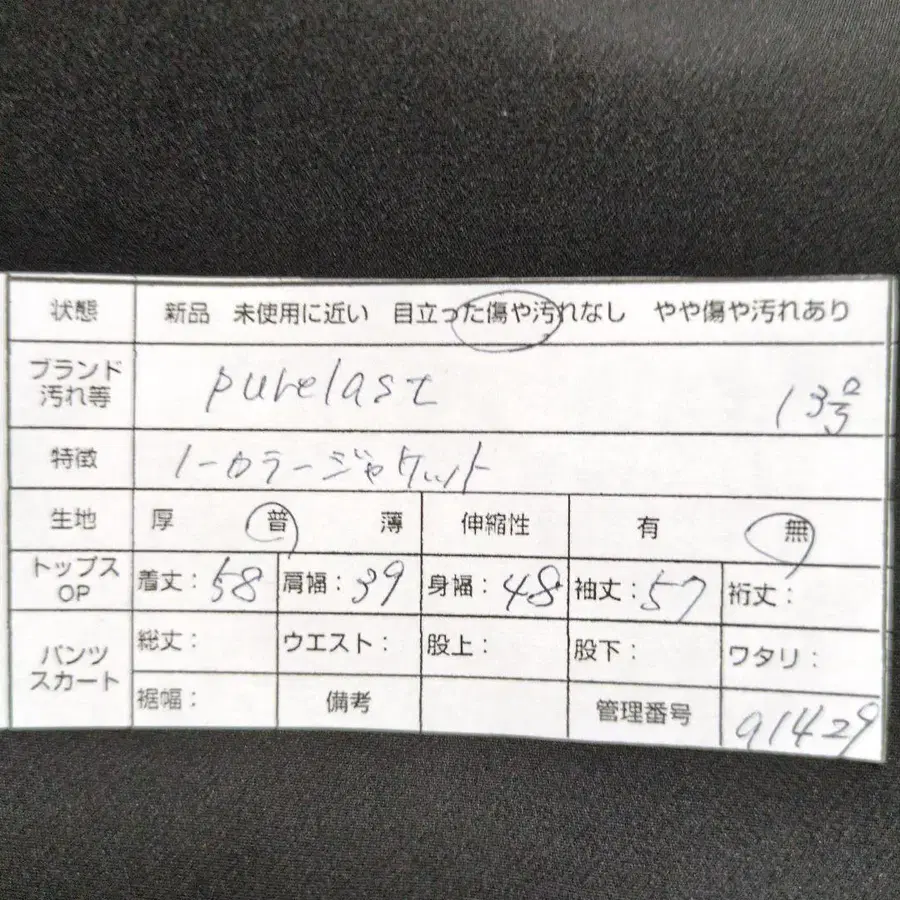 状態 新品 未使用に近い 目立った傷や汚れなし やや傷や汚れあり
ブランド 汚れ等 purelast 13号
特徴 ノーカラージャケット
生地 厚 普 薄 伸縮性 有 無
トップス OP 着丈:58 肩幅:39 身幅:48 袖丈:57 裄丈:
パンツ スカート 総丈: ウエスト: 股上: 股下: ワタリ:
裾幅: 備考 管理番号 91429